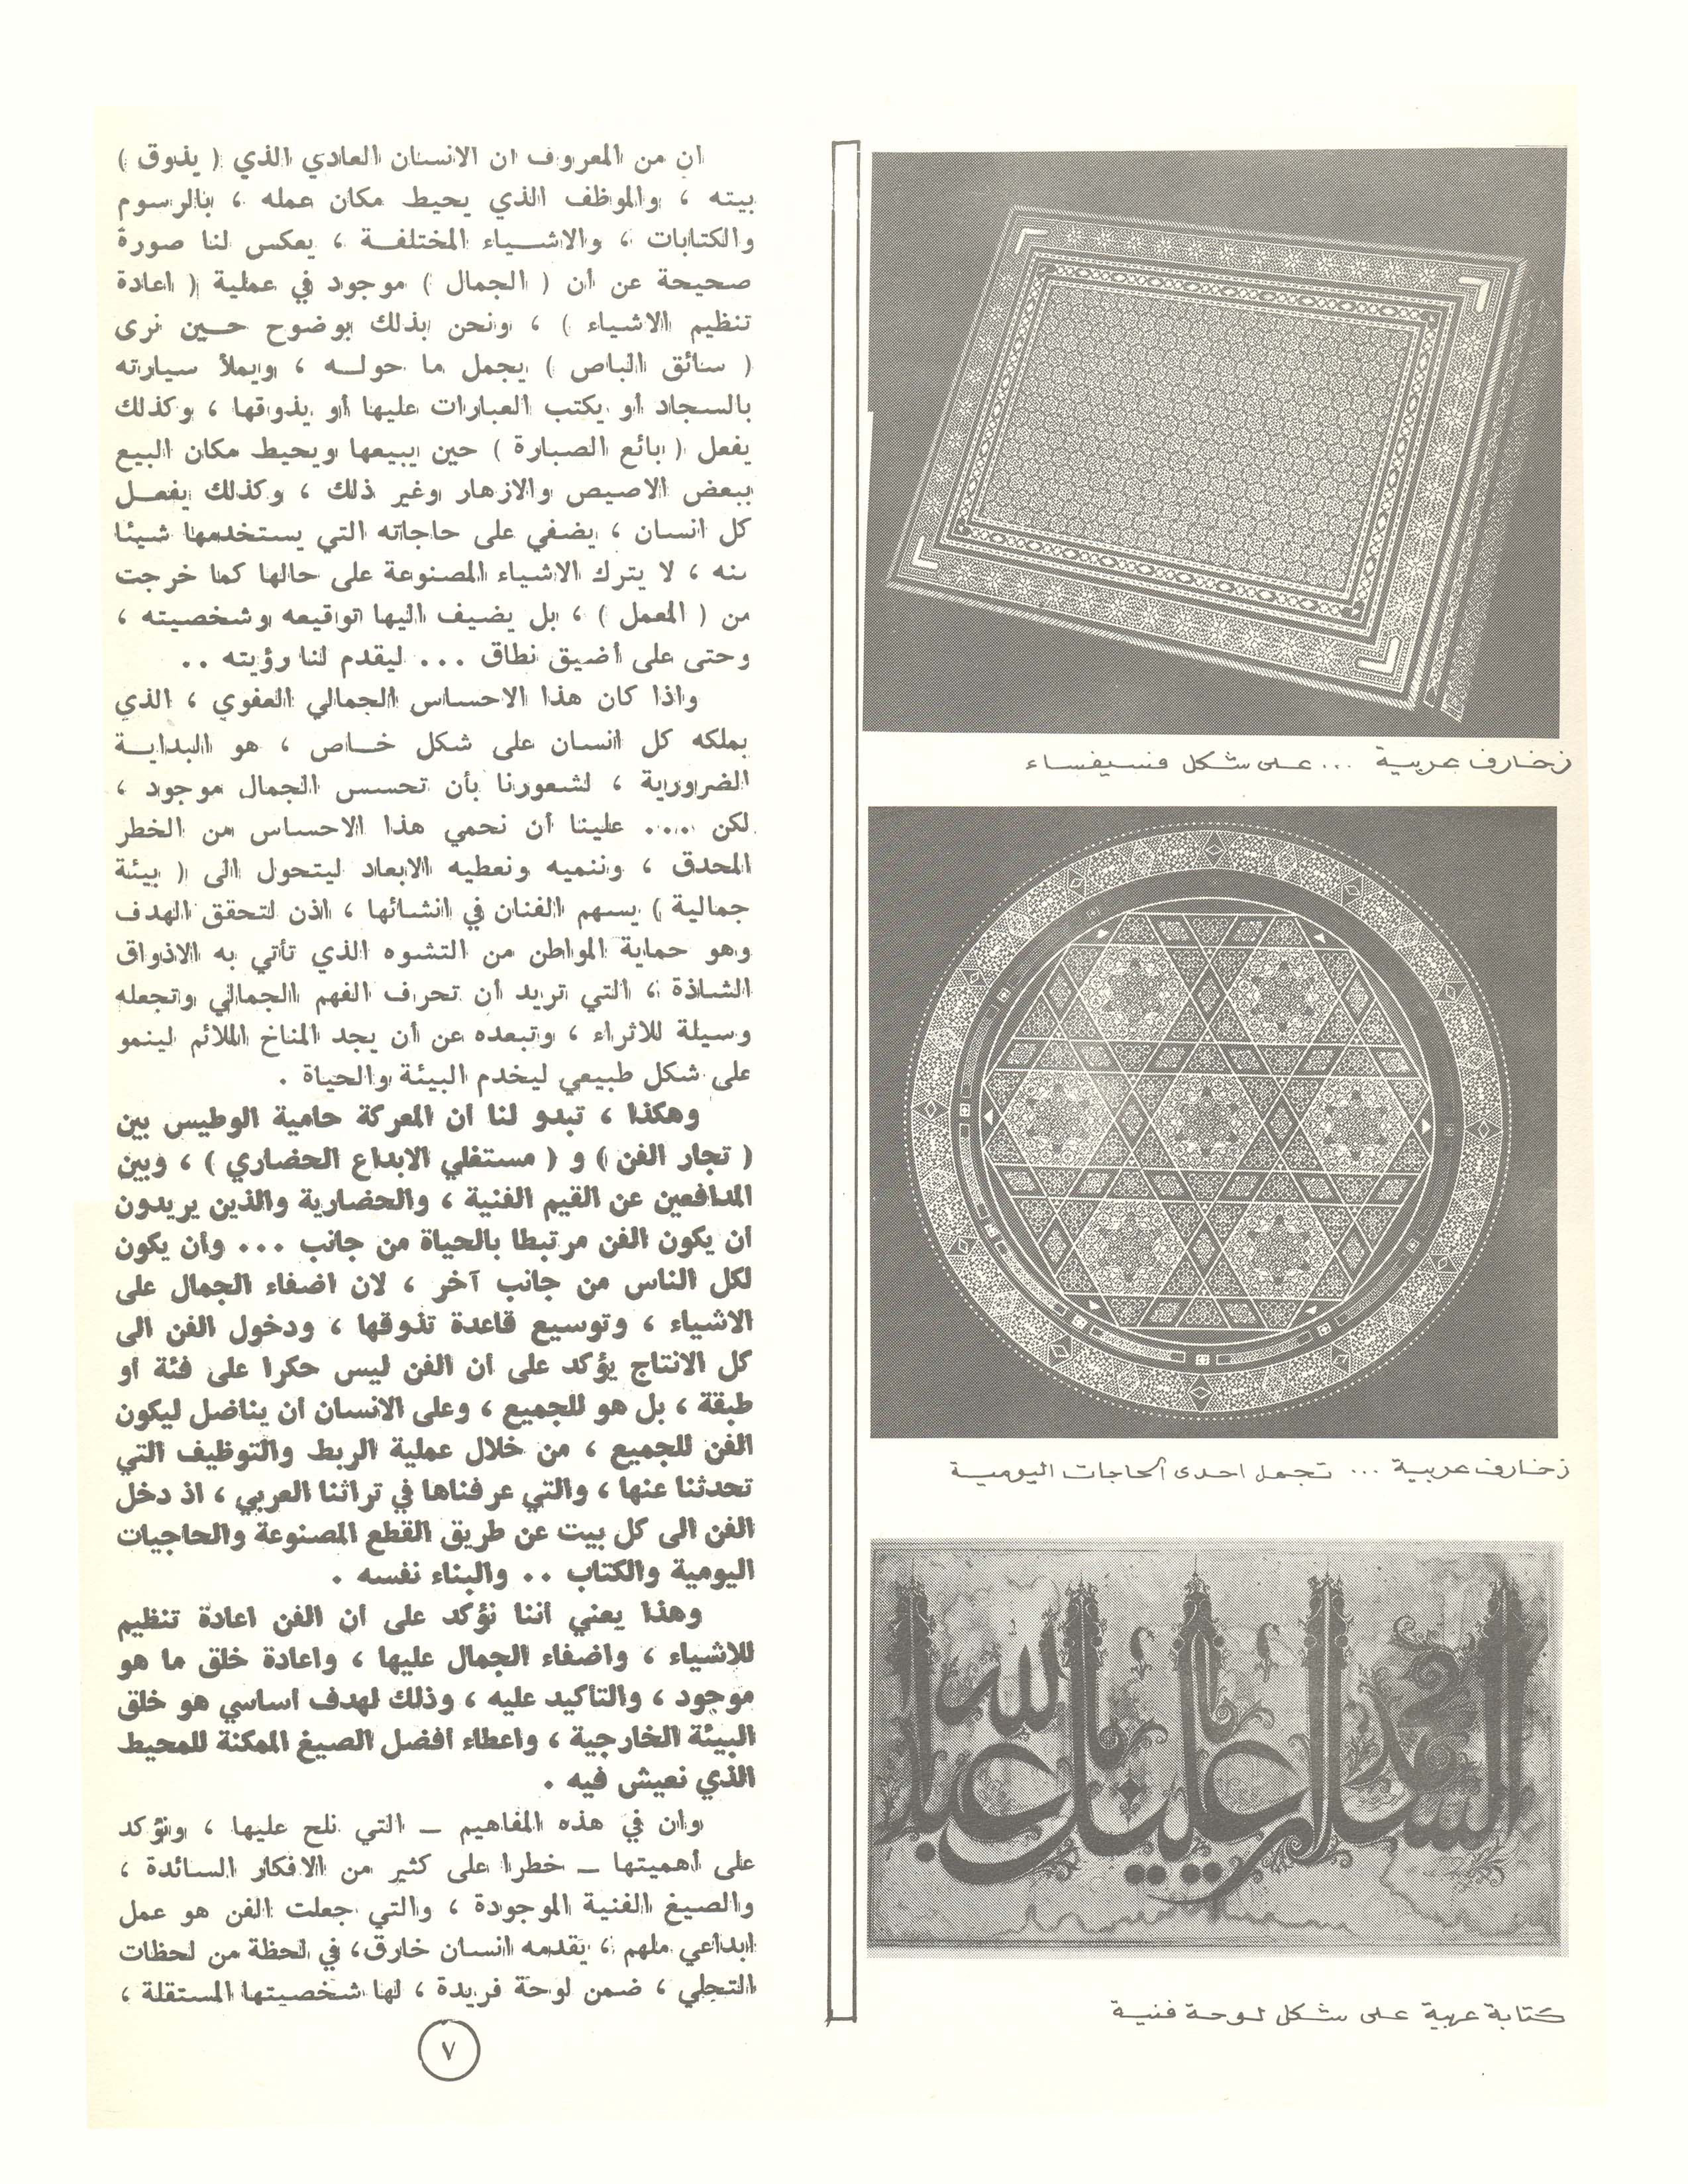 زخارف عربية ... على شكل فسيفساء
زخارف عربية ... تجمل احدى الحاجات اليومية
السلام عليك يا أبا عبد الله
كتابة عربية على شكل لوحة فنية
ان من المعروف ان الانسان العادي الذي ( يذوق )
بيته ، والموظف الذي يحيط مكان عمله ، بالرسوم
والكتابات ، والاشياء المختلفة ، يعكس لنا صورة
صحيحة عن أن ( الجمال ) موجود في عملية ( اعادة
تنظيم الاشياء ) ، ونحن بذلك بوضوح حين نرى
( سائق الباص ) يجمل ما حوله ، ويملأ سيارته
بالسجاد أو يكتب العبارات عليها أو يذوقها ، وكذلك
يفعل ( بائع الصبارة ) حين يبيعها ويحيط مكان البيع
ببعض الاصيص والازهار وغير ذلك ، وكذلك يفعل
كل انسان ، يضفي على حاجاته التي يستخدمها شيئا
منه ، لا يترك الاشياء المصنوعة على حالها كما خرجت
من ( المعمل ) ، بل يضيف اليها تواقيعه وشخصيته ،
وحتى على أضيق نطاق ... ليقدم لنا رؤيته ..
واذا كان هذا الاحساس الجمالي العفوي ، الذي
يملكه كل انسان على شكل خاص ، هو البداية
الضرورية ، لشعورنا بأن تحسس الجمال موجود ،
لكن .... علينا أن نحمي هذا الاحساس من الخطر
المحدق ، وننميه ونعطيه الابعاد ليتحول الى ( بيئة
جمالية ) يسهم الفنان في انشائها ، اذن لتحقق الهدف
وهو حماية المواطن من التشوه الذي تأتي به الاذواق
الشاذة ، التي تريد أن تحرف الفهم الجمالي وتجعله
وسيلة للاثراء ، وتبعده عن أن يجد المناخ الملائم لينمو
على شكل طبيعي ليخدم البيئة والحياة .
وهكذا ، تبدو لنا ان المعركة حامية الوطيس بين
( تجار الفن ) و ( مستغلي الابداع الحضاري ) ، وبين
المدافعين عن القيم الفنية ، والحضارية والذين يريدون
أن يكون الفن مرتبطا بالحياة من جانب ... وأن يكون
لكل الناس من جانب آخر ، لان اضفاء الجمال على
الاشياء ، وتوسيع قاعدة تذوقها ، ودخول الفن الى
كل الانتاج يؤكد على أن الفن ليس حكرا على فئة أو
طبقة ، بل هو للجميع ، وعلى الانسان أن يناضل ليكون
الفن للجميع ، من خلال عملية الربط والتوظيف التي
تحدثنا عنها ، والتي عرفناها في تراثنا العربي ، اذ دخل
الفن الى كل بيت عن طريق القطع المصنوعة والحاجيات
اليومية والكتاب .. والبناء نفسه .
وهذا يعني أننا نؤكد على أن الفن اعادة تنظيم
للاشياء ، واضفاء الجمال عليها ، واعادة خلق ما هو
موجود ، والتأكيد عليه ، وذلك لهدف أساسي هو خلق
البيئة الخارجية ، واعطاء أفضل الصيغ الممكنة للمحيط
الذي نعيش فيه .
وان في هذه المفاهيم – التي نلح عليها ، ونؤكد
على أهميتها – خطرا على كثير من الافكار السائدة ،
والصيغ الفنية الموجودة ، والتي جعلت الفن هو عمل
ابداعي ملهم ، يقدمه انسان خارق ، في لحظة من لحظات
التجلي ، ضمن لوحة فريدة ، لها شخصيتها المستقلة ،
٧